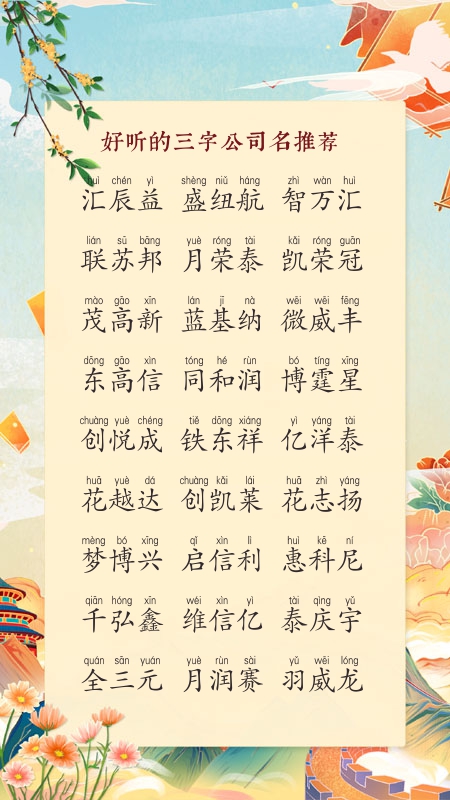 好听的三字公司名推荐
huì chén yì shèng niǔ háng zhì wàn huì
汇辰益 盛纽航 智万汇
lián sū bāng yuè róng tài kǎi róng guān
联苏邦 月荣泰 凯荣冠
mào gāo xīn lán jī nà wēi wēi fēng
茂高新 蓝基纳 微威丰
dōng gāo xìn tóng hé rùn bó tíng xīng
东高信 同和润 博霆星
chuàng yuè chéng tiě dōng xiáng yì yáng tài
创悦成 铁东祥 亿洋泰
huā yuè dá chuàng kǎi lái huā zhì yáng
花越达 创凯莱 花志扬
mèng bó xīng qǐ xìn lì huì kē ní
梦博兴 启信利 惠科尼
qiān hóng xīn wéi xìn yì tài qìng yǔ
千弘鑫 维信亿 泰庆宇
quán sān yuán yuè rùn sài yǔ wēi lóng
全三元 月润赛 羽威龙